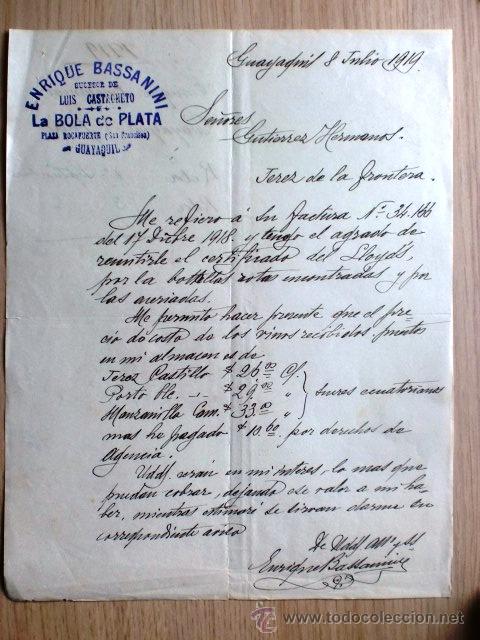 ENRIQUE BASSANINI
SUCESOR DE
LUIS CASTAGNETO
La BOLA de PLATA
PLAZA ROCAFUERTE (San Francisco)
GUAYAQUIL
Guayaquil 8 Julio 1919.
Señores
Gutierrez Hermanos.
Jerez de la frontera.
Me refiero á Su factura Nº 34.166
del 17 Dcbre 1918. y tengo el agrado de
remitirle el certificado del Lloyd's,
por la bottellas rotas encontradas y por
las averiadas.
Me permito hacer presente que el pre
cio de costo de los vinos recibidos puestos
en mi almacen es de
Jerez Castillo $ 26.00 c/.
Porto Ble. $ 29.00 " sucres ecuatorianos
Manzanilla Cam. $ 33.00 "
mas he pagado $ 10.60 por derechos de
Agencia.
Udds. veran en mi interes, lo mas que
puedan cobrar, dejando ese valor a mi ha-
ber, mientras estimaré se sirvan darme su
correspondiente aviso
De Udds. Att. y S.
Enrique Bassanini
www.todocoleccion.net